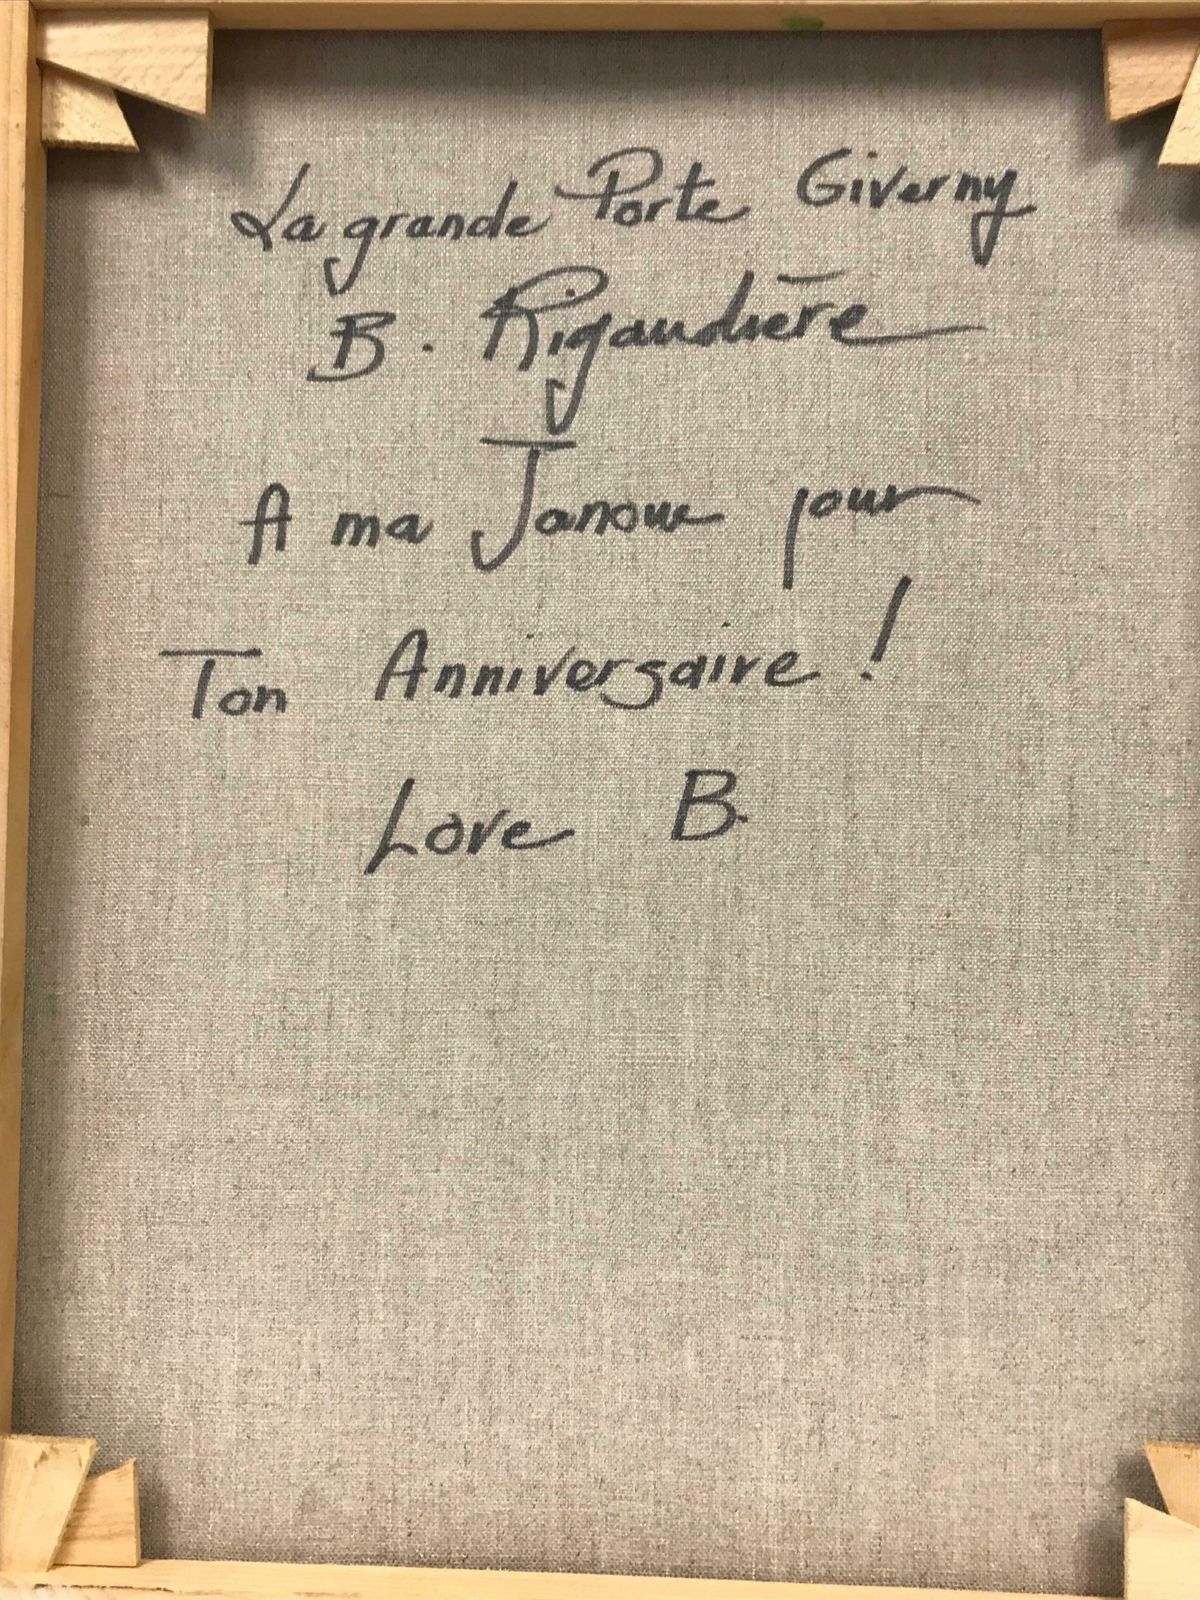 La grande Porte Giverny
B. Rigaudière
A ma Janou pour
Ton Anniversaire !
Love B.